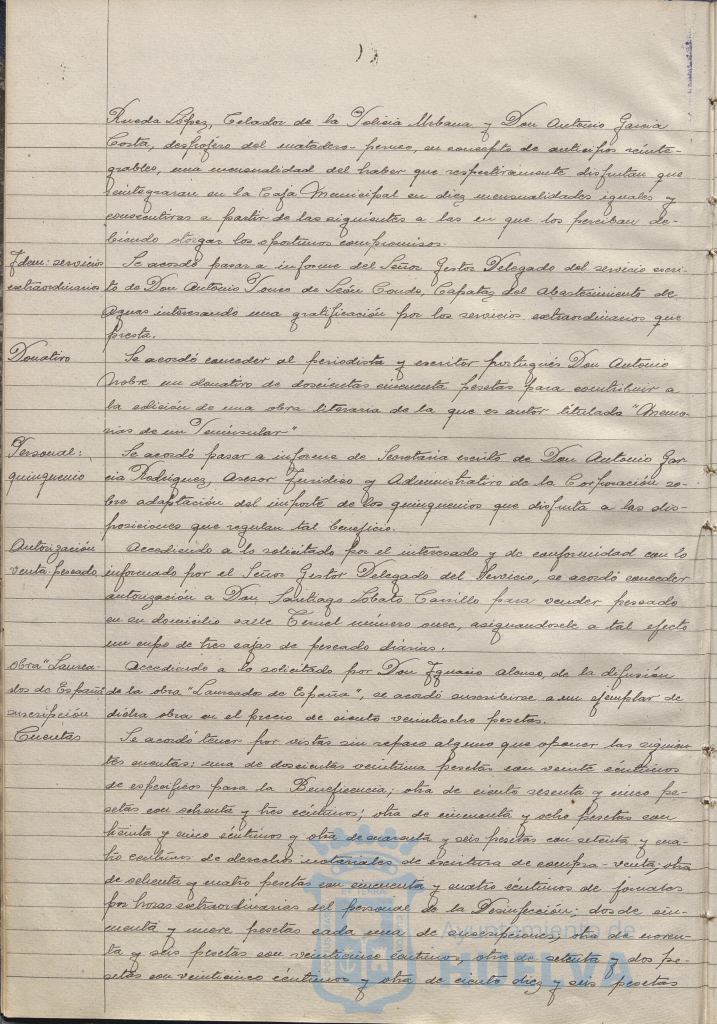 Rueda López, Celador de la Policía Urbana y Don Antonio Garcia
Costa, desfofero del matadero-perneo, en concepto de anticipos reinte-
grables, una mensualidad del haber que respectivamente disfrutan que
reintegraran en la Caja Municipal en diez mensualidades iguales y
consecutivas a partir de las siguientes a las en que los perciban de-
biendo otorgar los oportunos compromisos.
Idem: servicios
extraordinarios
Se acordó pasar a informe del Señor Gestor Delegado del servicio escri-
to de Don Antonio Ponce de León Conde, Capataz del Abastecimiento de
Aguas interesando una gratificación por los servicios extraordinarios que
presta.
Donativo
Se acordó conceder al periodista y escritor portugués Don Antonio
Nobre un donativo de doscientas cincuenta pesetas para contribuir a
la edición de una obra literaria de la que es autor titulada "Memo-
rias de un Peninsular"
Personal:
quinquenio
Se acordó pasar a informe de Secretaria escrito de Don Antonio Gar-
cia Rodriguez, Asesor Juridico y Administrativo de la Corporación so-
bre adaptación del importe de los quinquenios que disfruta a las dis-
posiciones que regulan tal beneficio.
Autorización
venta pescado
Accediendo a lo solicitado por el interesado y de conformidad con lo
informado por el Señor Gestor Delegado del Servicio, se acordó conceder
autorización a Don Santiago Lobato Carrillo para vender pescado
en su domicilio calle Teruel número once, asignandosele a tal efecto
un cupo de tres cajas de pescado diarias.
Obra "Laurea-
dos de España"
suscripción
Accediendo a lo solicitado por Don Ignacio Alonso, de la difusión
de la obra "Laureados de España", se acordó suscribirse a un ejemplar de
dicha obra en el precio de ciento veintiocho pesetas.
Cuentas
Se acordó tener por vistas sin reparo alguno que oponer las siguien-
tes cuentas: una de doscientas veintiuna pesetas con veinte céntimos
de especificos para la Beneficencia; otra de ciento sesenta y cinco pe-
setas con ochenta y tres céntimos; otra de cincuenta y ocho pesetas con
treinta y cinco céntimos y otra de cuarenta y seis pesetas con setenta y cua-
tro céntimos de derechos notariales de escritura de compra-venta; otra
de ochenta y cuatro pesetas con cincuenta y cuatro céntimos de jornales
por horas extraordinarias del personal de la Desinfección; dos de cin-
cuenta y nueve pesetas cada una de suscripciones; otra de noven-
ta y seis pesetas con veinticinco céntimos, otra de setenta y dos pe-
setas con veinticinco céntimos y otra de ciento diez y seis pesetas
Ayuntamiento de
HUELVA